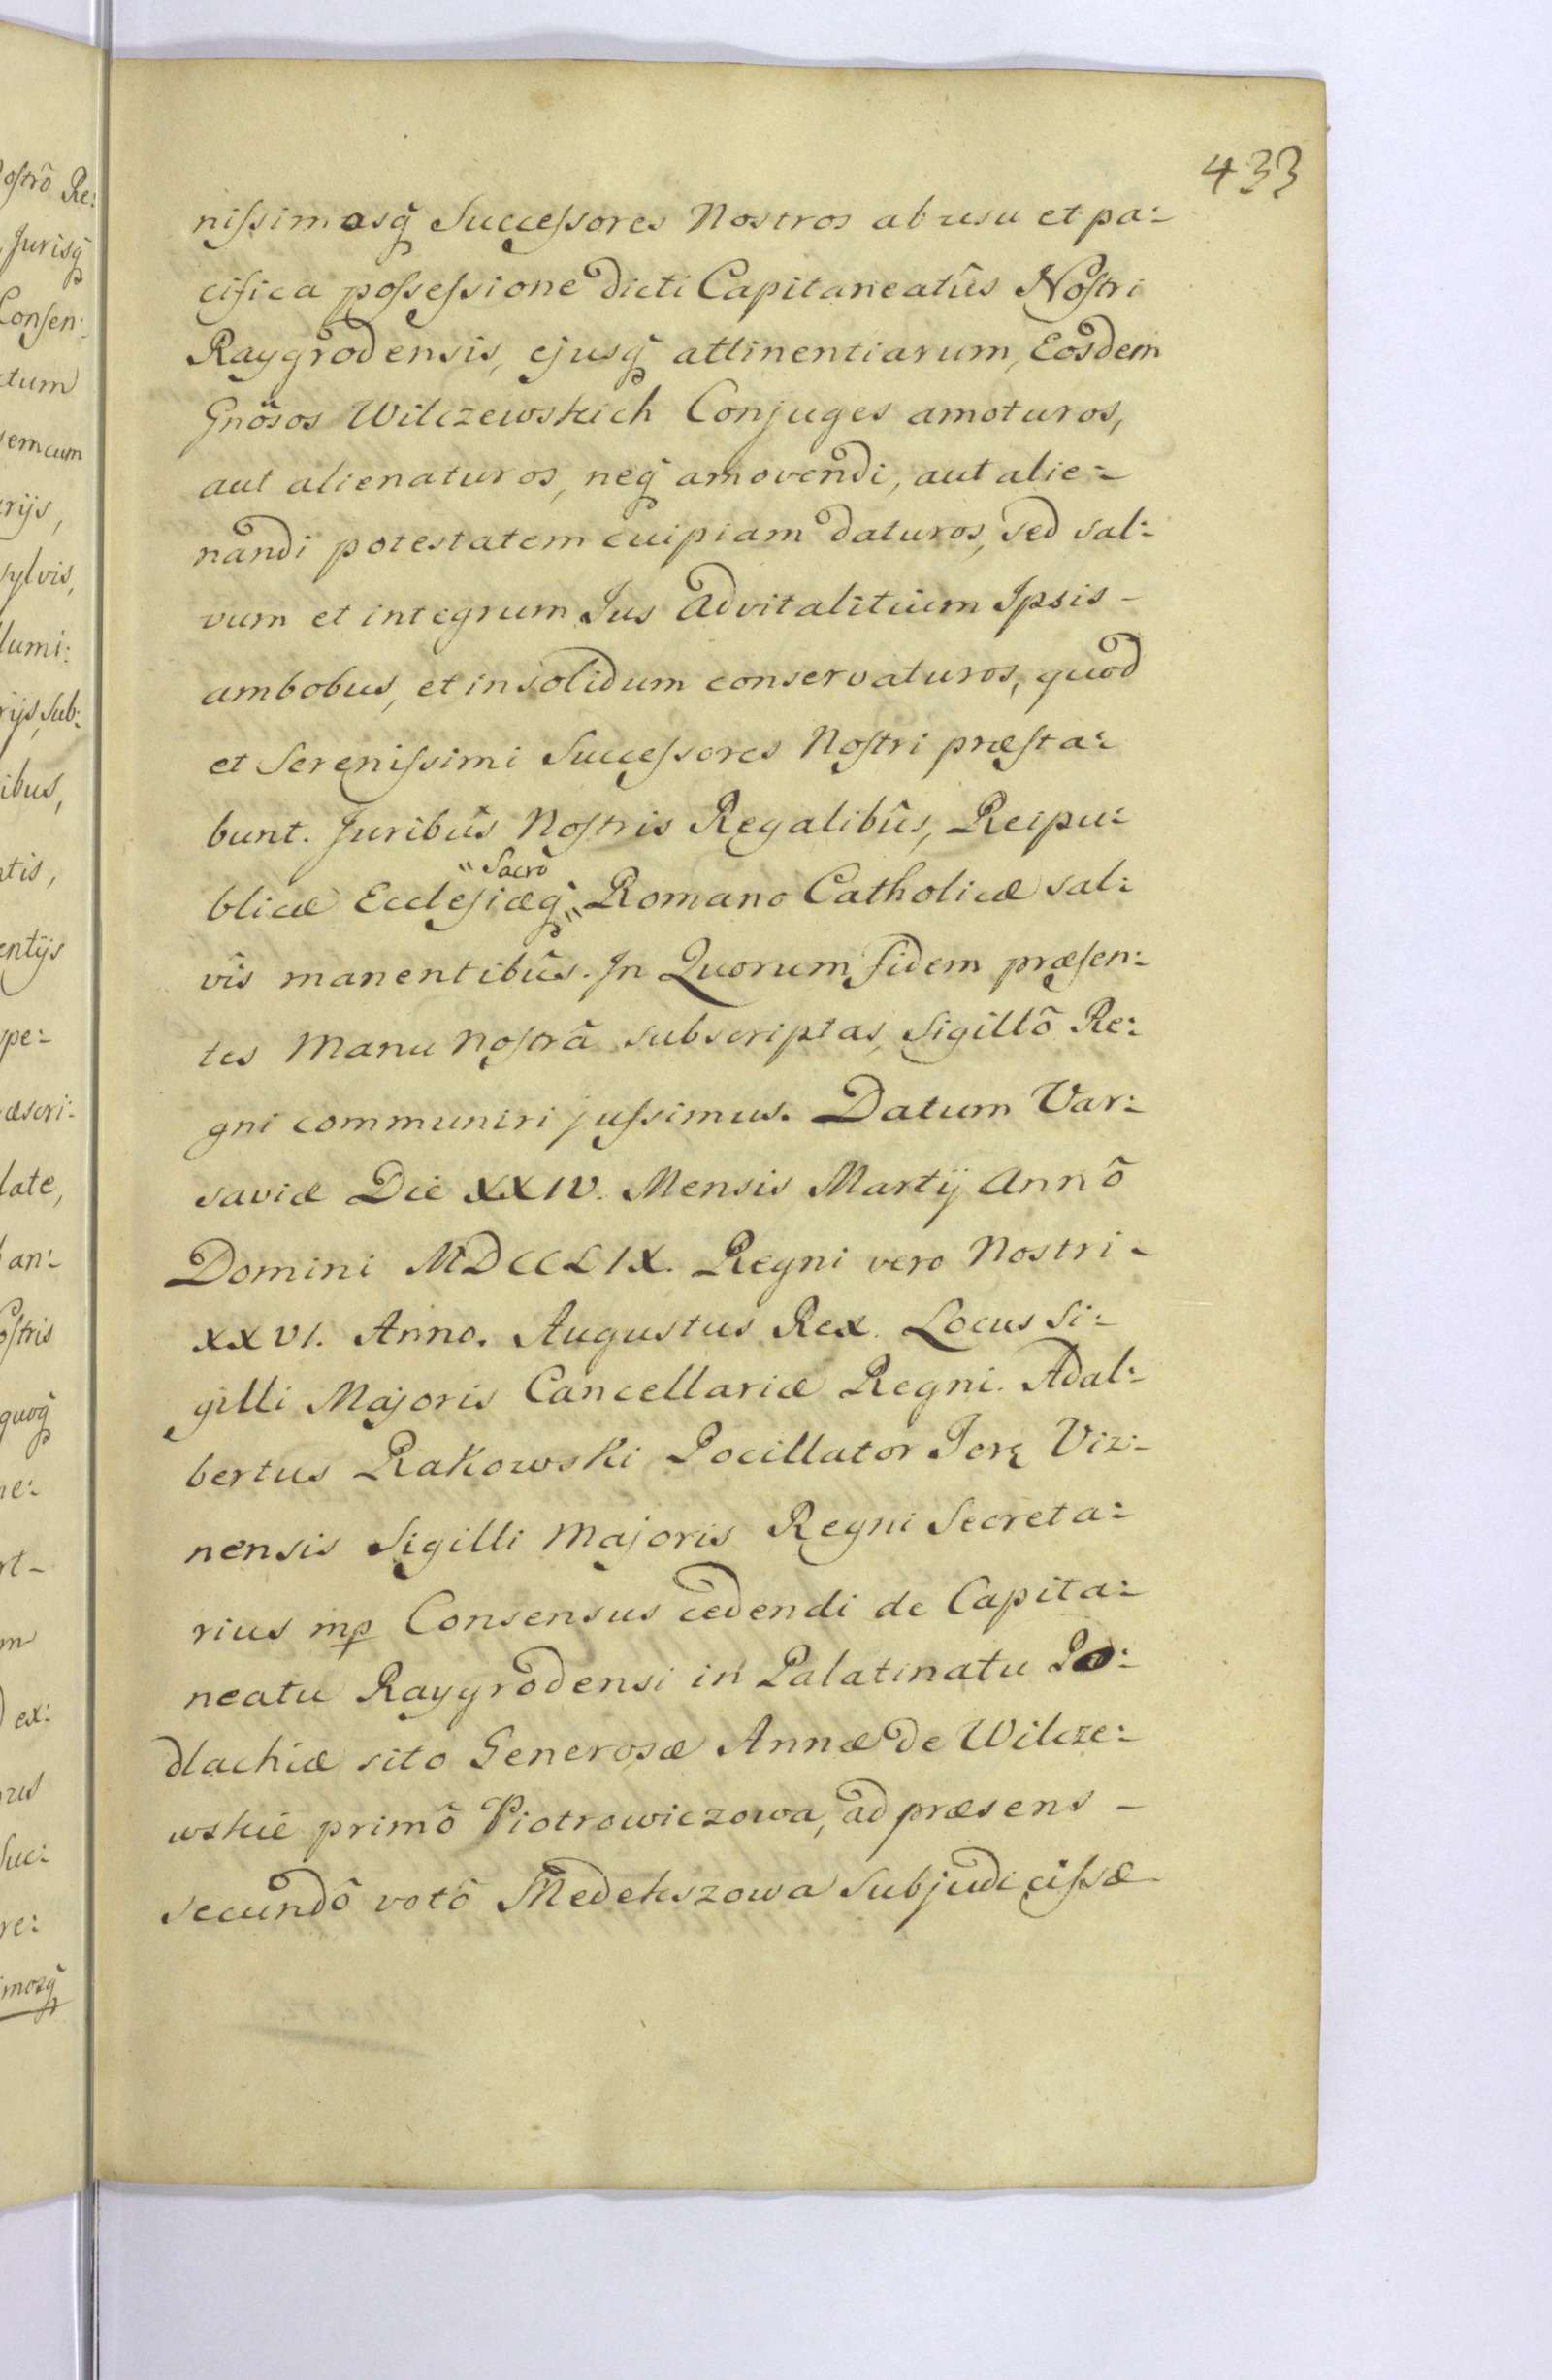 433
nissimosq̃ Successores Nostros ab usu et pa:
cifica possessione dicti Capitaneatûs Nostri
Raygrodensis, ejusq̃ attinentiarum, Eosdem
Gnõsos Wilczewskich Conjuges amoturos,
aut alienaturos, neq̃ amovendi, aut alie:
nandi potestatem cuipiam daturos, sed sal:
vum et integrum Jus Advitalitium Ipsis -
ambobus, et insolidum conservaturos, quod
et Serenissimi Successores Nostri præsta:
bunt. Juribûs Nostris Regalibûs, Reipu:
" Sacro
blicæ Ecclesiæq̃ " Romano Catholicæ sal:
vîs manentibûs. In Quorum fidem præsen:
tes Manu nostrâ subscriptas, Sigillô Re:
gni communiri jussimus. Datum Var:
saviæ Die XXIV. Mensis Martij Annô
Domini MDCCLIX. Regni vero Nostri -
XXVI. Anno. Augustus Rex. Locus Si:
gilli Majoris Cancellariæ Regni. Adal:
bertus Rakowski Pocillator Terꝝ Viz:
nensis Sigilli Majoris Regni Secreta:
rius mp Consensus cedendi de Capita:
neatu Raygrodensi in Palatinatu Po:
dlachiæ sito Generosæ Annæ de Wilcze:
wskie primô Piotrowiczowa, ad præsens -
secundô votô Medekszowa Subjudicissæ
ostrô Re:
Jurisq̃
Consen:
ctum
emcum
rijs,
sylvis,
lumi:
rijs, sub:
ibus,
tis,
entijs
pe:
æscri:
late,
an:
ostris
quoq̃
ne:
rt-
m
ex:
Suc:
re:
imosq̃